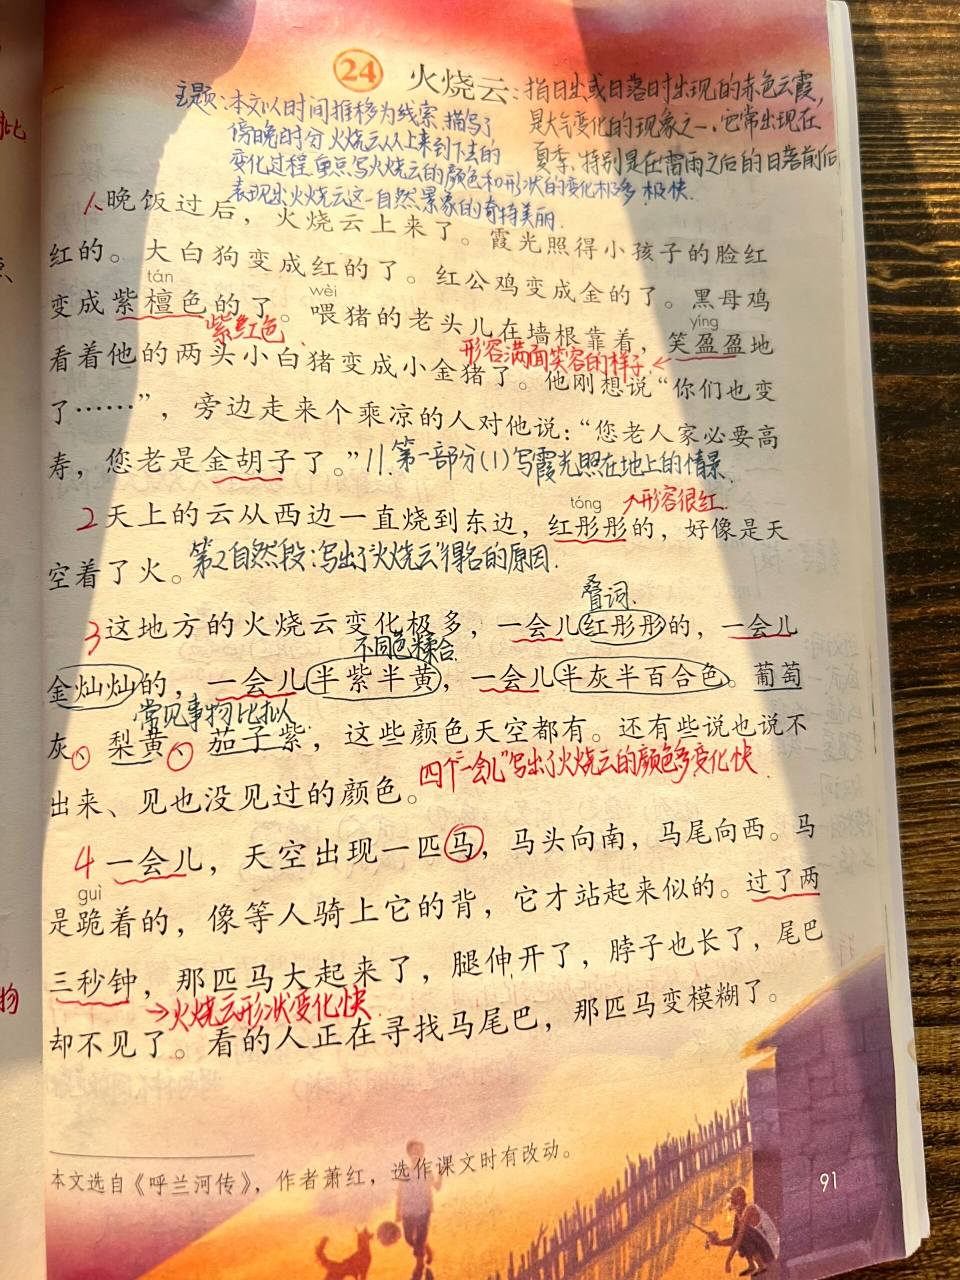 24 火烧云：指日出或日落时出现的赤色云霞，
是大气变化的现象之一，它常出现在
夏季，特别是在雷雨之后的日落前后
主题：本文以时间推移为线索，描写了
傍晚时分火烧云从上来到下去的
变化过程，重点写火烧云的颜色和形状的变化极多 极快.
表现出火烧云这一自然景象的奇特美丽.
1 晚饭过后，火烧云上来了。霞光照得小孩子的脸红
红的。大白狗变成红的了。红公鸡变成金的了。黑母鸡
tán
变成紫檀色的了。喂猪的老头儿在墙根靠着，笑盈盈地
wèi
yíng
紫红色.
形容满面笑容的样子.
看着他的两头小白猪变成小金猪了。他刚想说“你们也变
了……”，旁边走来个乘凉的人对他说：“您老人家必要高
寿，您老是金胡子了。”
第一部分(1)写霞光照在地上的情景.
tóng
形容很红.
2 天上的云从西边一直烧到东边，红彤彤的，好像是天
空着了火。
第2自然段：写出了“火烧云”得名的原因.
叠词.
3 这地方的火烧云变化极多，一会儿红彤彤的，一会儿
不同色糅合.
金灿灿的，一会儿半紫半黄，一会儿半灰半百合色。葡萄
常见事物比拟
灰、梨黄、茄子紫，这些颜色天空都有。还有些说也说不
出来、见也没见过的颜色。
四个“一会儿”写出了火烧云的颜色多变化快.
4 一会儿，天空出现一匹马，马头向南，马尾向西。马
guì
是跪着的，像等人骑上它的背，它才站起来似的。过了两
三秒钟，那匹马大起来了，腿伸开了，脖子也长了，尾巴
→火烧云形状变化快.
却不见了。看的人正在寻找马尾巴，那匹马变模糊了。
本文选自《呼兰河传》，作者萧红，选作课文时有改动。
91